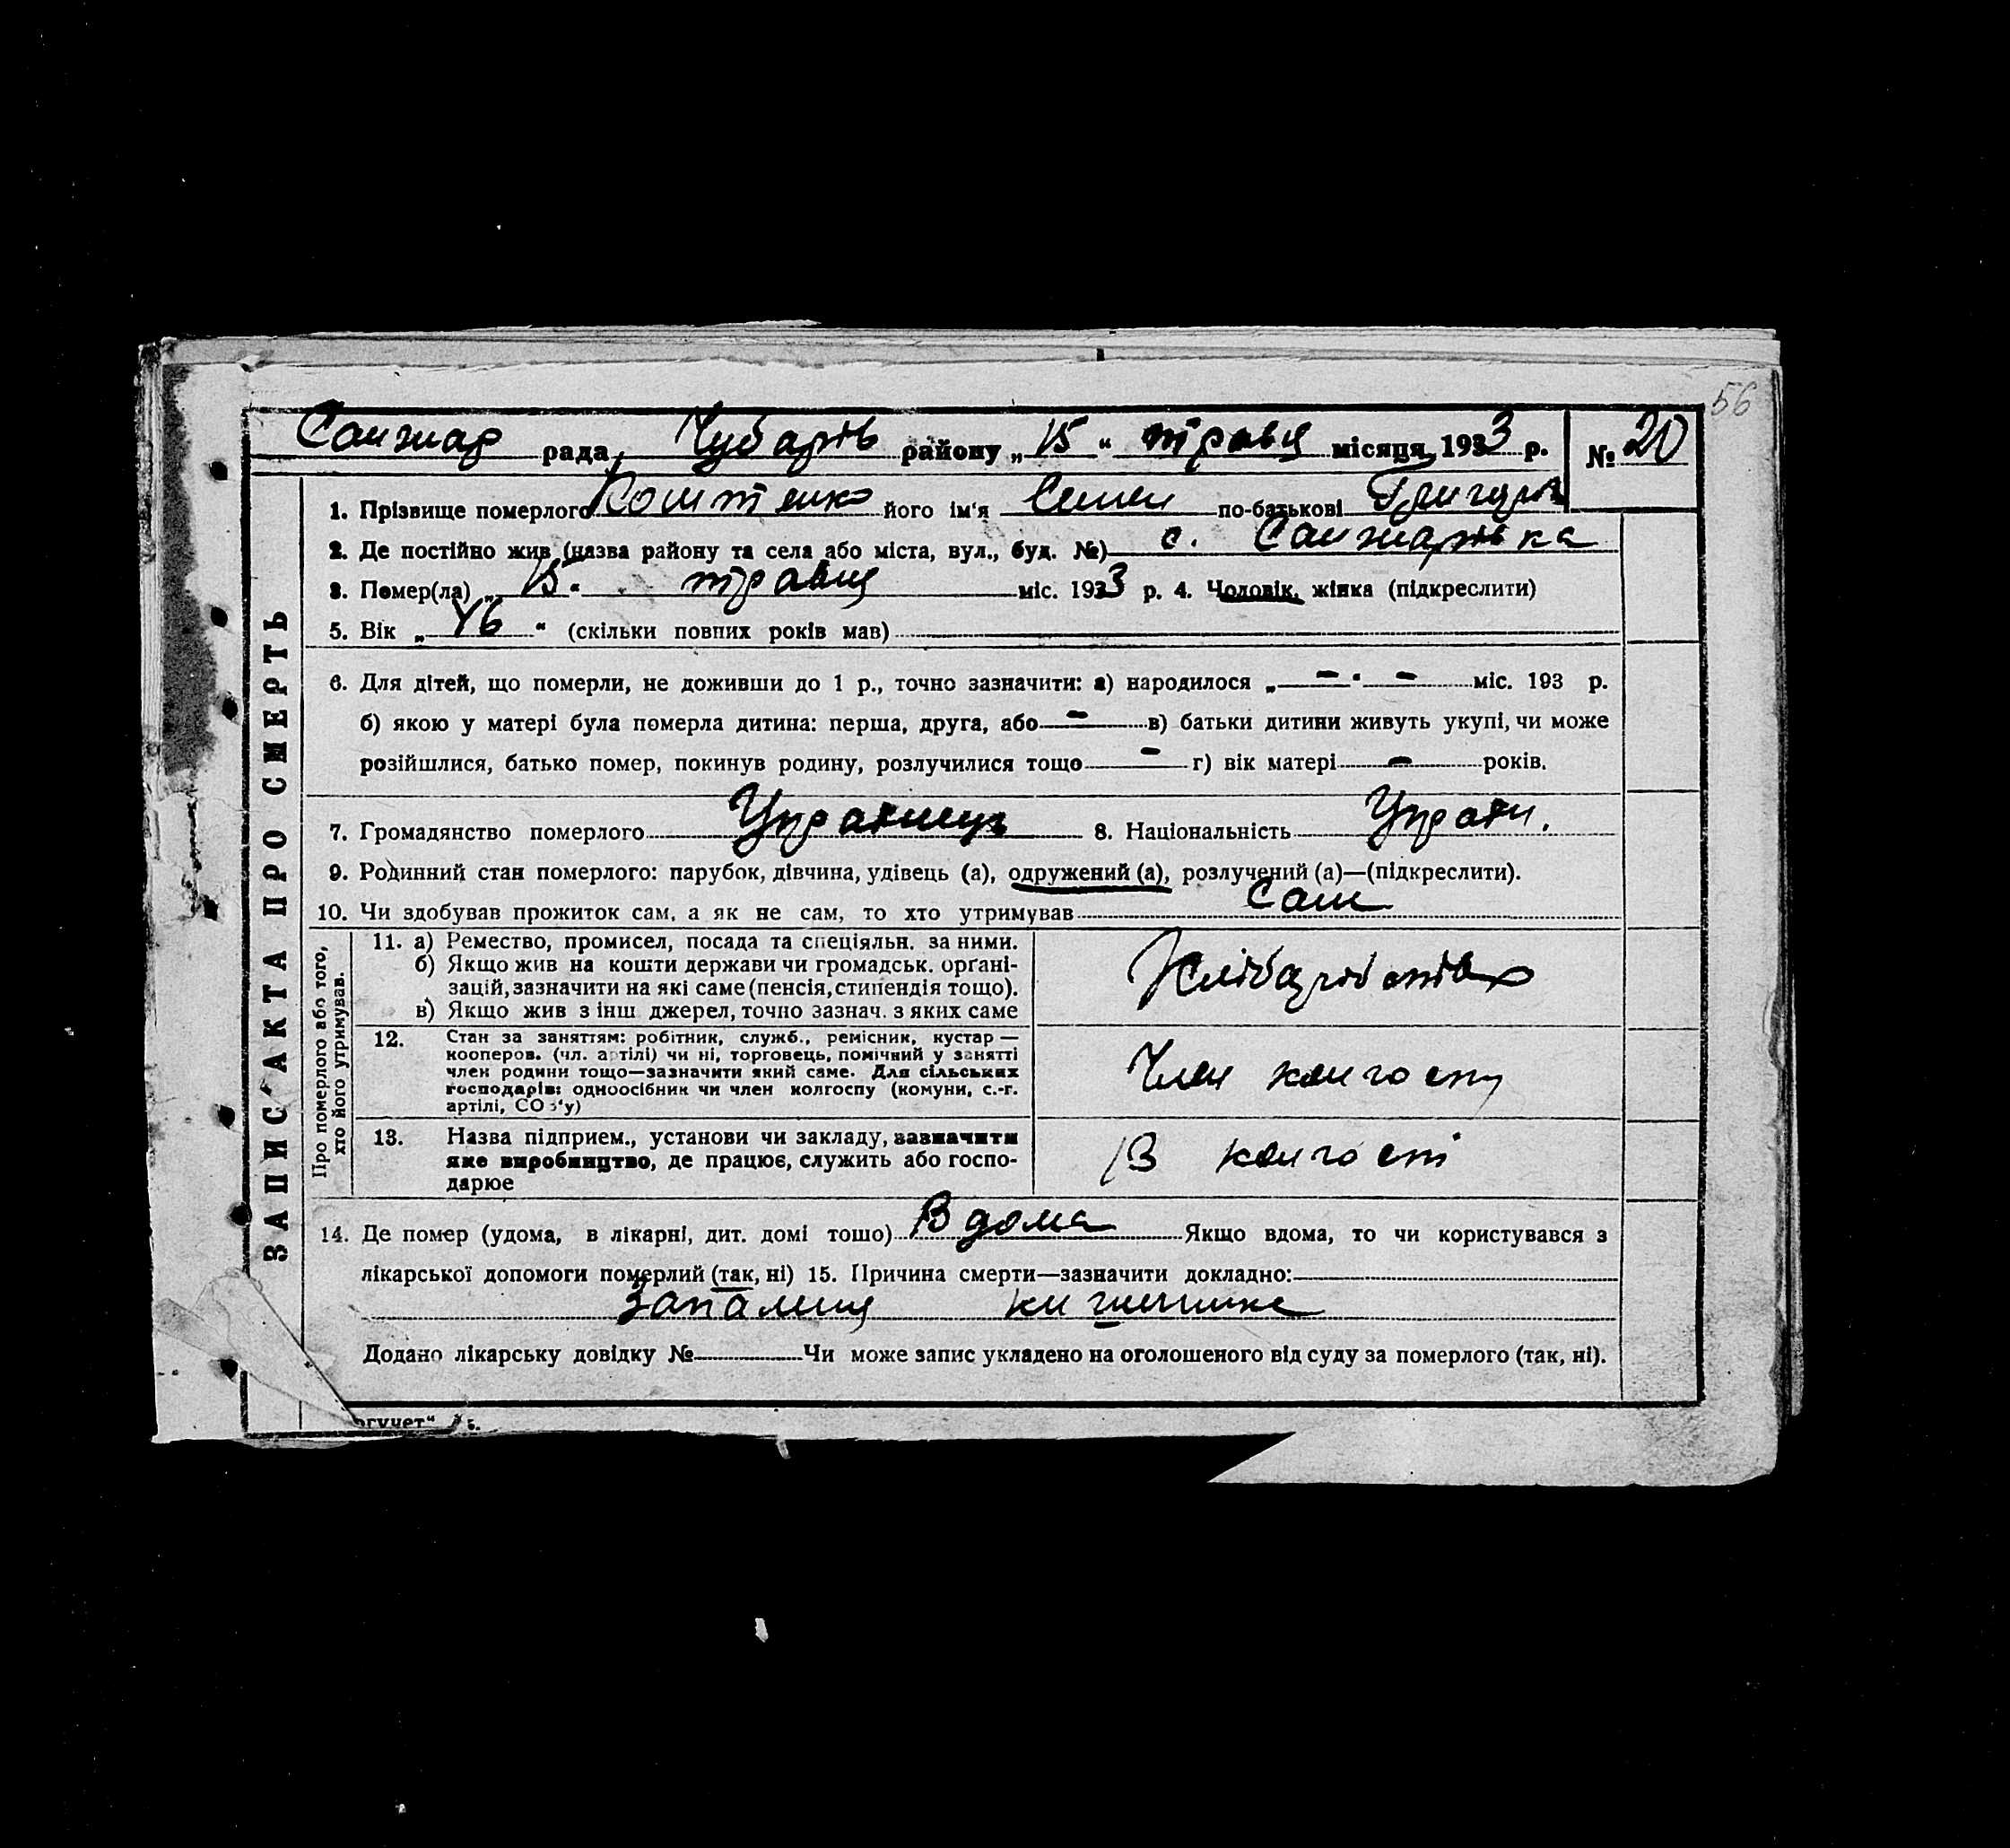 56
Санжар рада, Чубарів району „15“ травня місяця 1933 р. № 20
ЗАПИС АКТА ПРО СМЕРТЬ
1. Прізвище померлого Коштенко його ім'я Семен по-батькові Григоров
2. Де постійно жив (назва району та села або міста, вул., буд. №) с. Санжарівка
3. Помер(ла) „15“ травня міс. 1933 р. 4. Чоловік, жінка (підкреслити)
5. Вік „46“ (скільки повних років мав)
6. Для дітей, що померли, не доживши до 1 р., точно зазначити: а) народилося „ — “ — міс. 193 р.
б) якою у матері була померла дитина: перша, друга, або — в) батьки дитини живуть укупі, чи може
розійшлися, батько помер, покинув родину, розлучилися тощо — г) вік матері — років.
7. Громадянство померлого Українець 8. Національність Україн.
9. Родинний стан померлого: парубок, дівчина, удівець (а), одружений (а), розлучений (а)—(підкреслити).
10. Чи здобував прожиток сам, а як не сам, то хто утримував Сам
Про померлого або того,
хто його утримував.
11. а) Ремество, промисел, посада та спеціяльн. за ними.
б) Якщо жив на кошти держави чи громадськ. органі-
зацій, зазначити на які саме (пенсія, стипендія тощо).
в) Якщо жив з інш джерел, точно зазнач. з яких саме
Хлібаробство
12. Стан за заняттям: робітник, служб., ремісник, кустар —
кооперов. (чл. артілі) чи ні, торговець, помічний у занятті
член родини тощо—зазначити який саме. Для сільських
господарів: одноосібник чи член колгоспу (комуни, с.-г.
артілі, СОЗ'у)
Член колгоспу
13. Назва підприєм., установи чи закладу, зазначити
яке виробництво, де працює, служить або госпо-
дарює
В колгоспі
14. Де помер (удома, в лікарні, дит. домі тощо) В дома Якщо вдома, то чи користувався з
лікарської допомоги померлий (так, ні) 15. Причина смерти—зазначити докладно:
Запалення кишечника
Додано лікарську довідку № Чи може запис укладено на оголошеного від суду за померлого (так, ні).